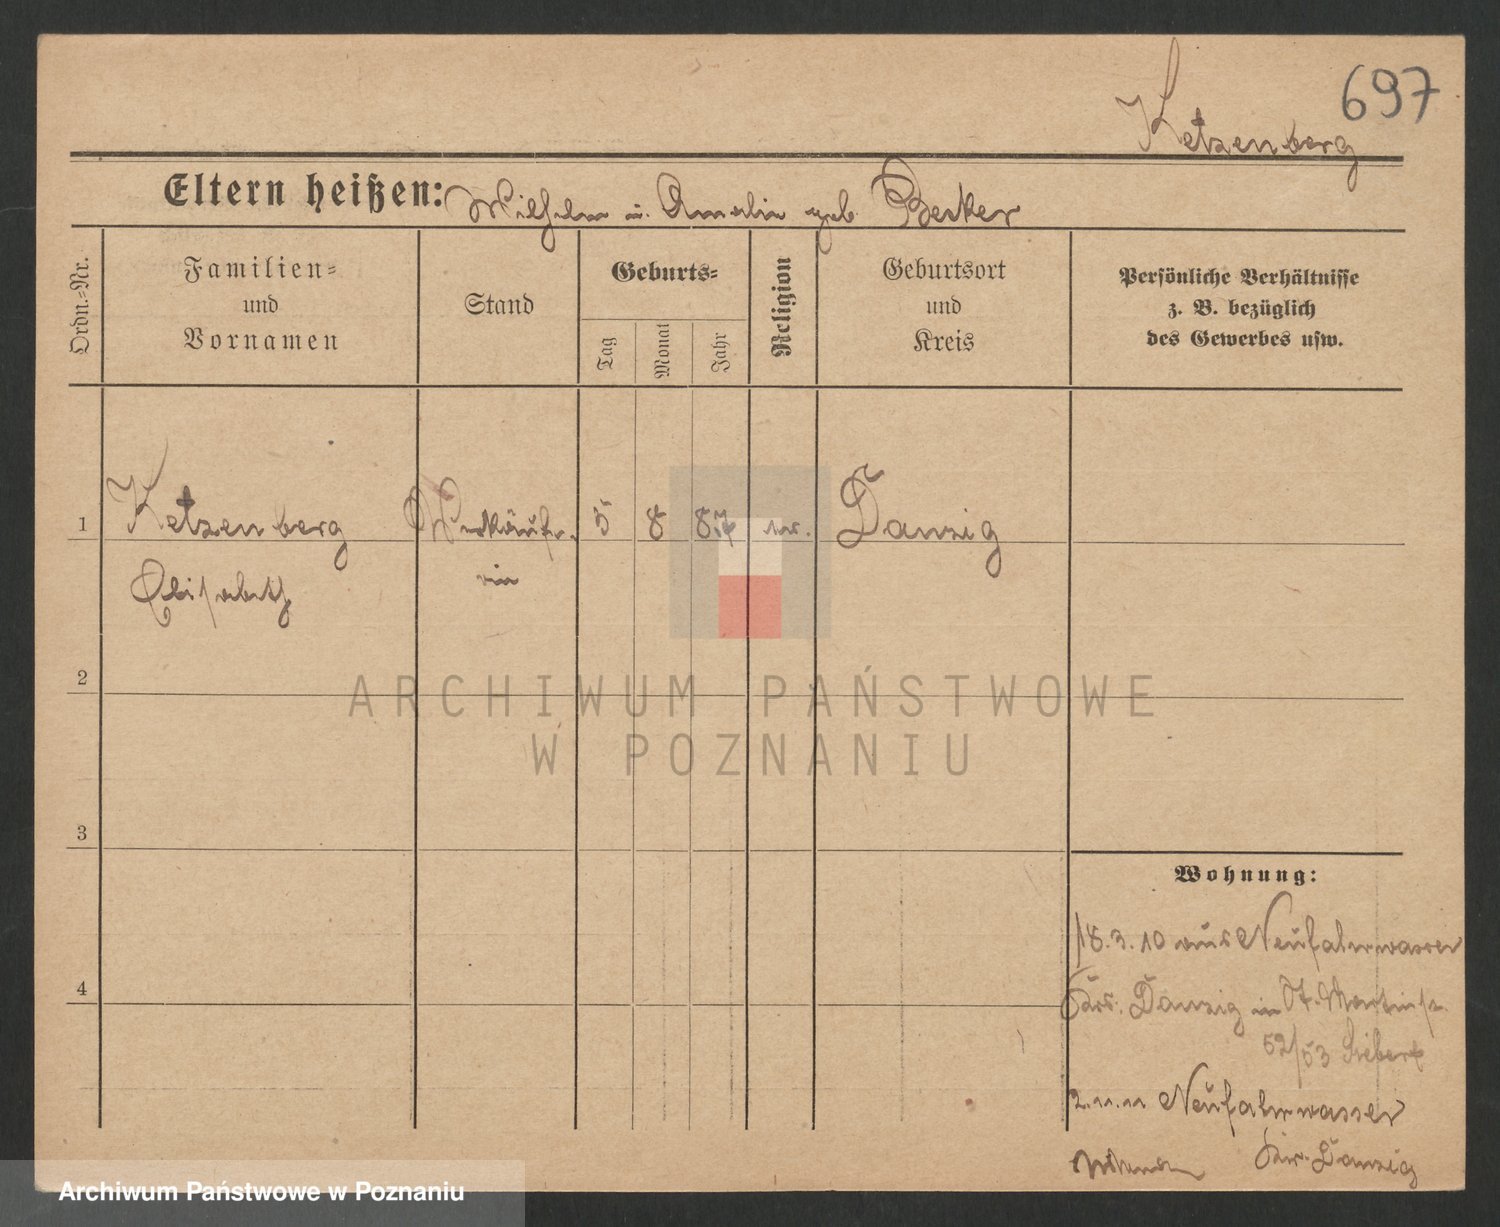 697
Ketzenberg
Eltern heißen: Wilhelm u. Amalie geb. Becker
Ordn.-Nr.
Familien-
und
Vornamen
Stand
Geburts-
Tag
Monat
Jahr
Religion
Geburtsort
und
Kreis
Persönliche Verhältnisse
z. B. bezüglich
des Gewerbes usw.
1 Ketzenberg Verkäufe- 5 8 87 ev. Danzig
rin
Elisabeth
2
ARCHIWUM PAŃSTWOWE
W POZNANIU
3
Wohnung:
18.3.10 aus Neufahrwasser
4
Krs. Danzig in St. Martinstr.
52/53 Siebert
2.11.11 Neufahrwasser
Kr. Danzig
Archiwum Państwowe w Poznaniu